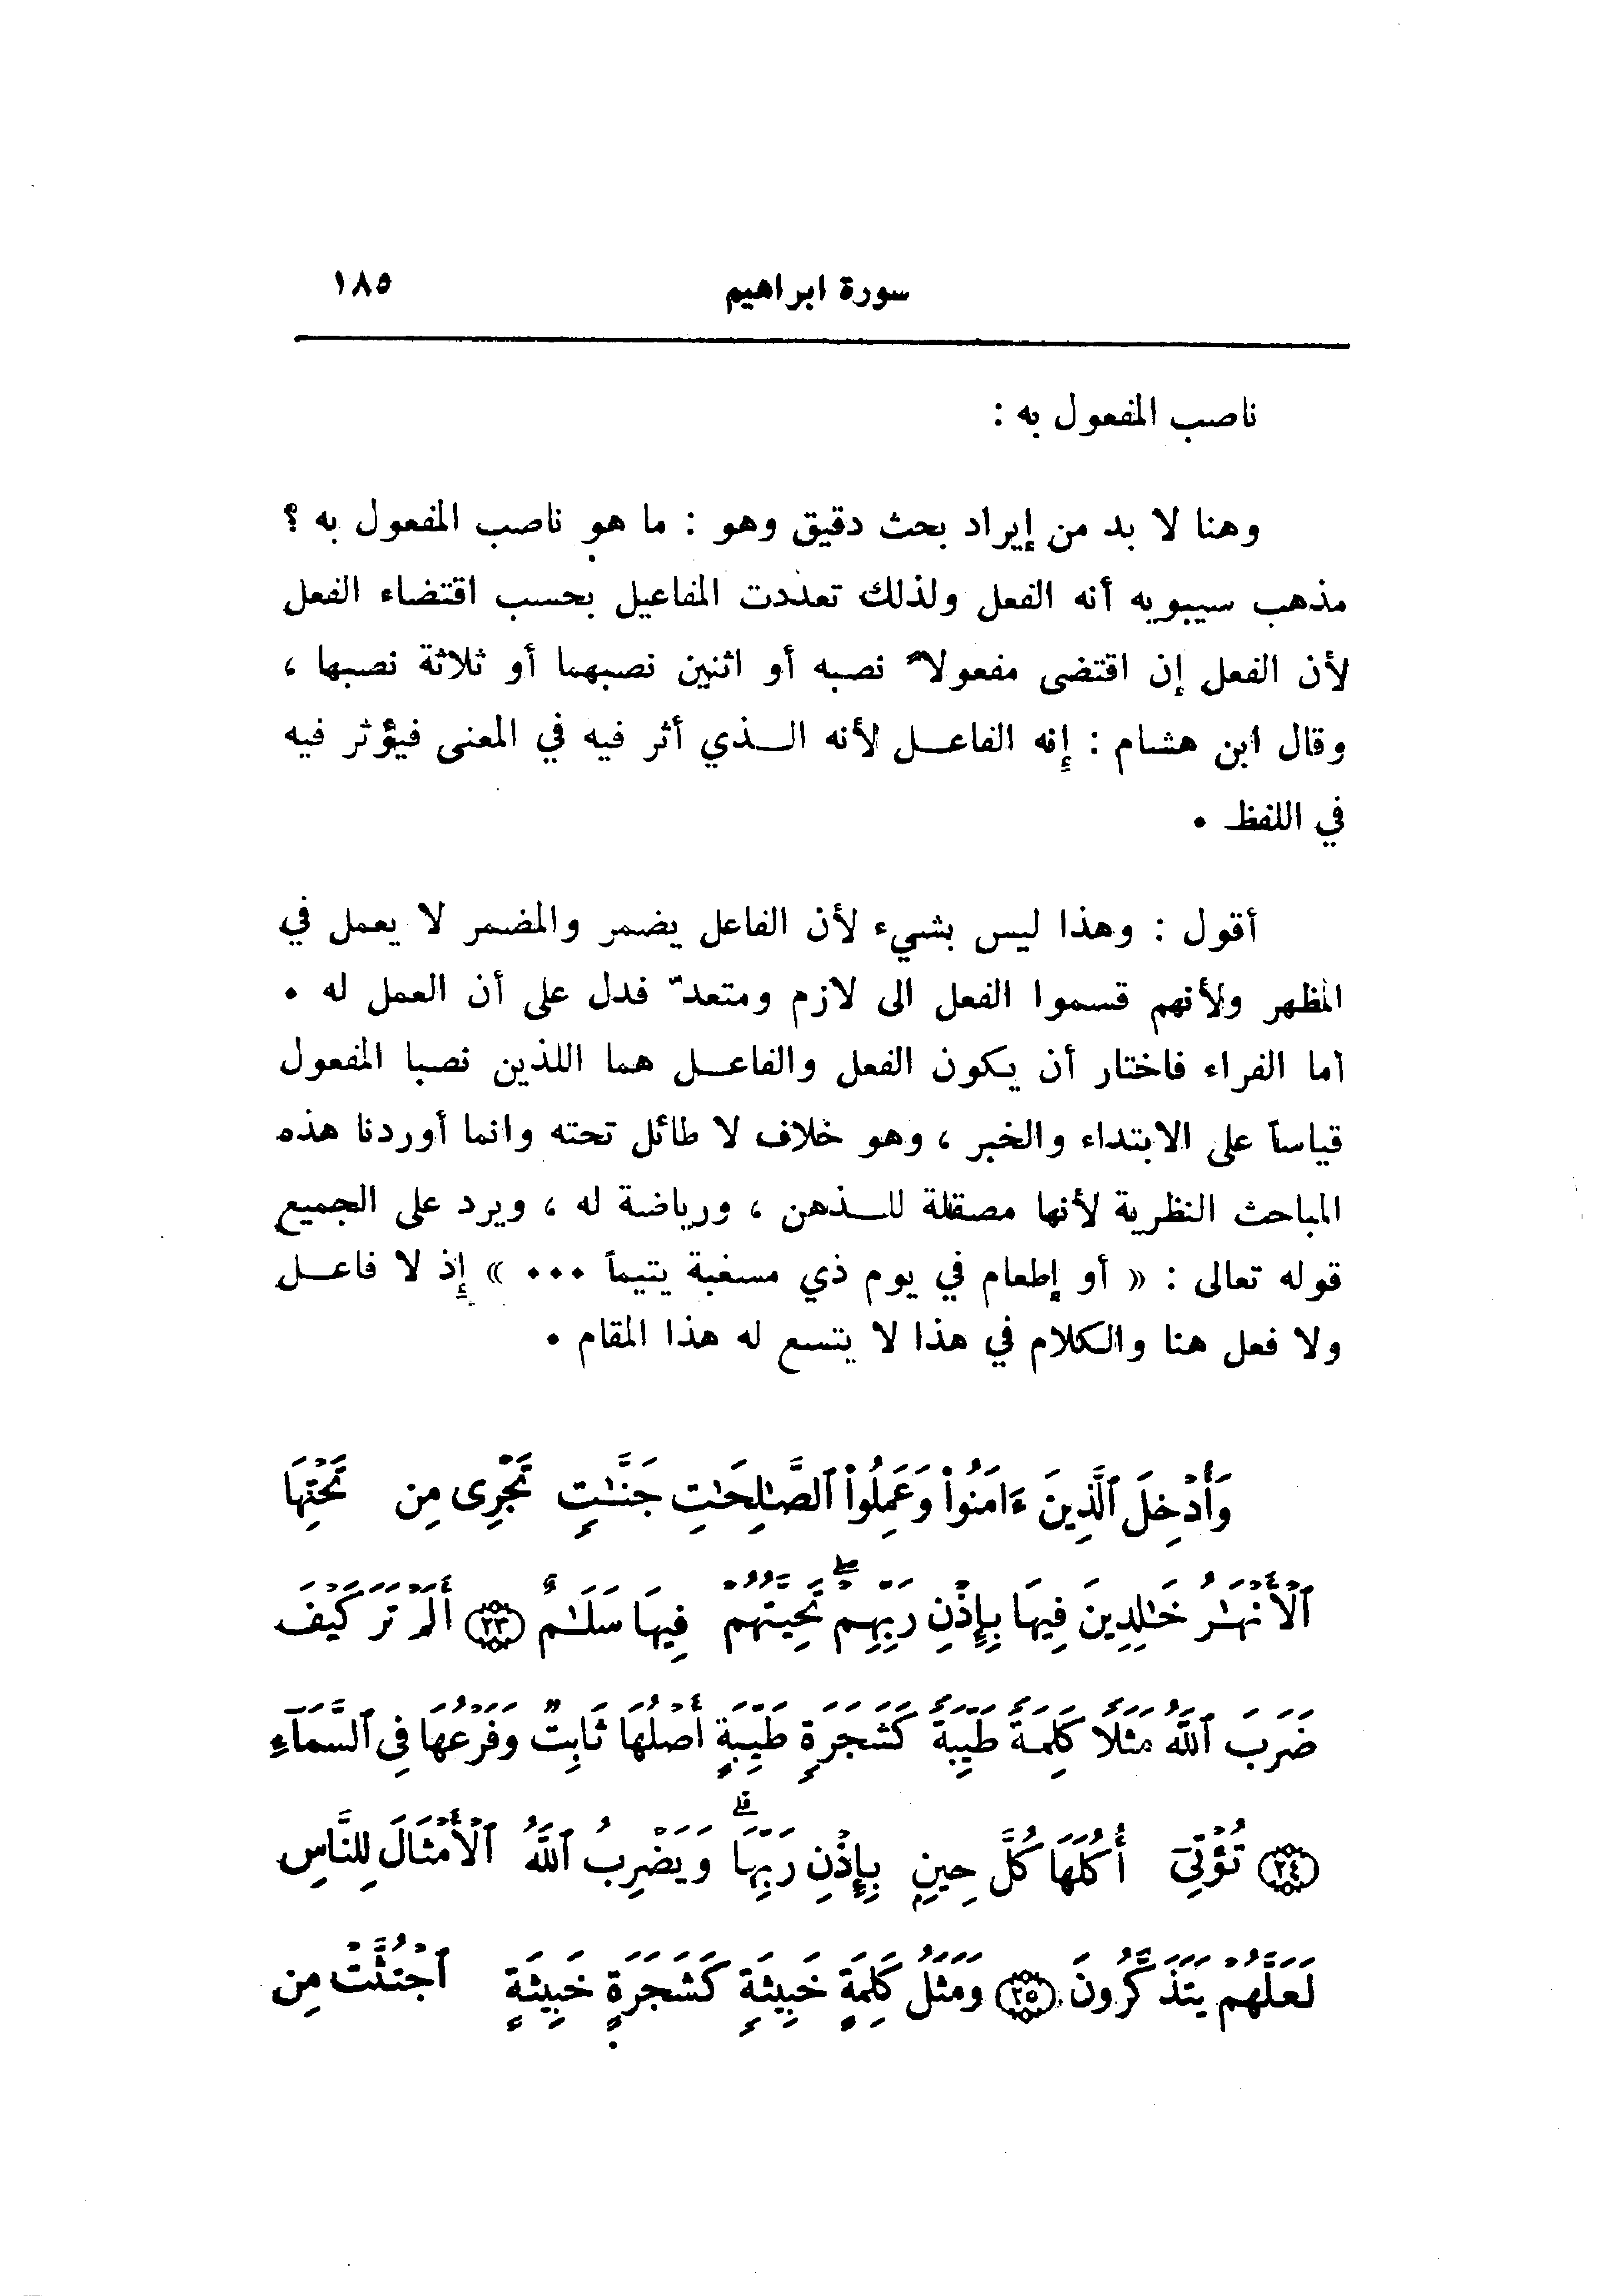 سورة ابراهيم ١٨٥
ناصب المفعول به :
وهنا لا بد من إيراد بحث دقيق وهو : ما هو ناصب المفعول به ؟
مذهب سيبويه أنه الفعل ولذلك تعددت المفاعيل بحسب اقتضاء الفعل
لأن الفعل إن اقتضى مفعولاً نصبه أو اثنين نصبهما أو ثلاثة نصبها ،
وقال ابن هشام : إنه الفاعل لأنه الذي أثر فيه في المعنى فيؤثر فيه
في اللفظ .
أقول : وهذا ليس بشيء لأن الفاعل يضمر والمضمر لا يعمل في
المظهر ولأنهم قسموا الفعل الى لازم ومتعدّ فدل على أن العمل له .
أما الفراء فاختار أن يكون الفعل والفاعل هما اللذين نصبا المفعول
قياساً على الابتداء والخبر ، وهو خلاف لا طائل تحته وانما أوردنا هذه
المباحث النظرية لأنها مصقلة للذهن ، ورياضة له ، ويرد على الجميع
قوله تعالى : « أو إطعام في يوم ذي مسغبة يتيماً ... » إذ لا فاعل
ولا فعل هنا والكلام في هذا لا يتسع له هذا المقام .
وَأُدْخِلَ ٱلَّذِينَ ءَامَنُواْ وَعَمِلُواْ ٱلصَّـٰلِحَـٰتِ جَنَّـٰتٍ تَجْرِى مِن تَحْتِهَا
ٱلْأَنْهَـٰرُ خَـٰلِدِينَ فِيهَا بِإِذْنِ رَبِّهِمْ ۖ تَحِيَّتُهُمْ فِيهَا سَلَـٰمٌ ٢٣ أَلَمْ تَرَ كَيْفَ
ضَرَبَ ٱللَّهُ مَثَلًا كَلِمَةً طَيِّبَةً كَشَجَرَةٍ طَيِّبَةٍ أَصْلُهَا ثَابِتٌ وَفَرْعُهَا فِى ٱلسَّمَآءِ
٢٤ تُؤْتِىٓ أُكُلَهَا كُلَّ حِينٍ بِإِذْنِ رَبِّهَا ۗ وَيَضْرِبُ ٱللَّهُ ٱلْأَمْثَالَ لِلنَّاسِ
لَعَلَّهُمْ يَتَذَكَّرُونَ ٢٥ وَمَثَلُ كَلِمَةٍ خَبِيثَةٍ كَشَجَرَةٍ خَبِيثَةٍ ٱجْتُثَّتْ مِن